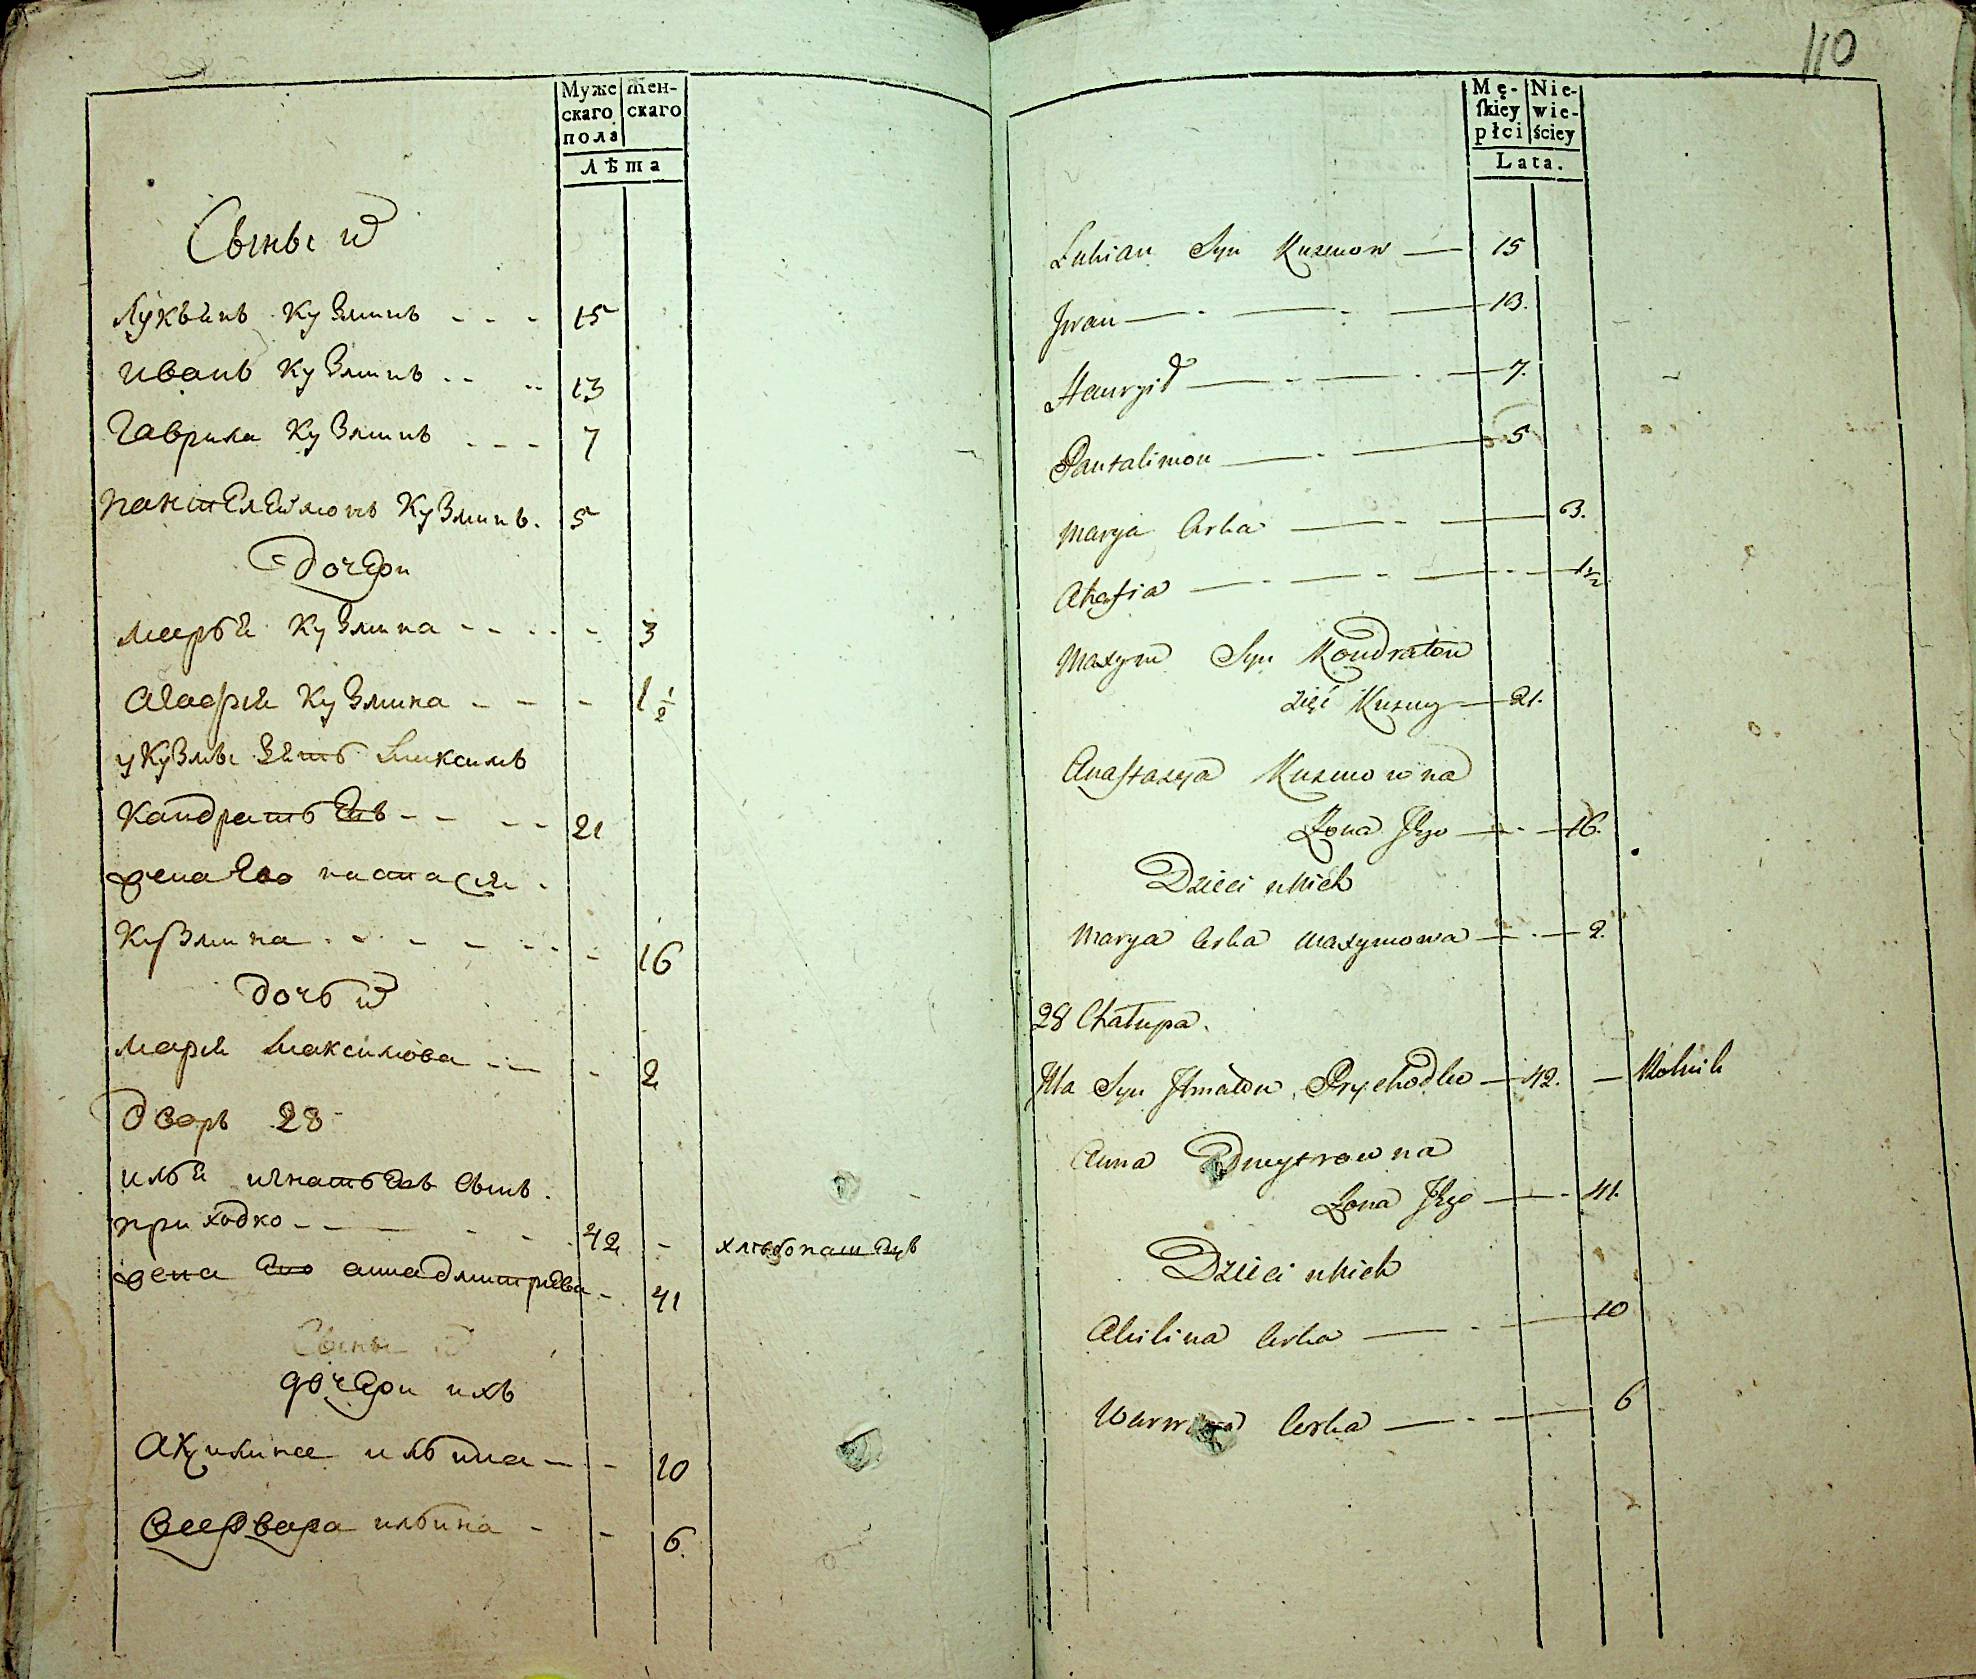 Муже
скаго
пола
жен-
скаго
Лѣта
Сыны их
Лукьянъ Кузминъ - - - 15
Иванъ Кузминъ - - - 13
Гаврила Кузминъ - - - 7
Пантелеймонъ Кузминъ. 5
дочери
Марья Кузмина - - - - 3
Агафия Кузмина - - - 1 1/2
у Кузмы зять Максимъ
Кандратьевъ - - - - 21
жена Его настася
Кузмина - - - - - 16
дочь их
Мария Максимова - - - 2
дворъ 28
илья игнатьевъ сынъ
приходко - - - - 42 - хлебопашецъ
жена Его анна дмитриева - 41
Сыны их
дочери ихъ
Акилина ильина - - 10
варвара ильина - - 6.
110
Mę-
skiey
płci
Nie-
wie-
ściey
Lata.
Łukian Syn Kuzmow — 15
Jwan — - — - — 13.
Hawryił — - — - — 7.
Pantalimon — - — 5
Marya Corka — - — 3.
Ahafia — - — - — - — 1 1/2
Maxym Syn Kondratow
zięć Kuzmy — 21.
Anastazya Kuzmowna
Zona Jego — - — 16.
Dzieci u Nich
Marya Corka Maxymowa — - — 2.
28 Chałupa.
Jlla Syn Jhnatow Prychodko — 42. — Rolnik
Anna Dmytrowna
Zona Jego — - 41.
Dzieci u Nich
Akilina Corka — - — 10
Warwara Corka — - — 6